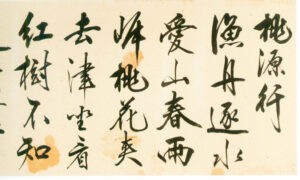 桃源行
漁舟逐水
愛山春兩
岸桃花夾
去津坐看
紅樹不知